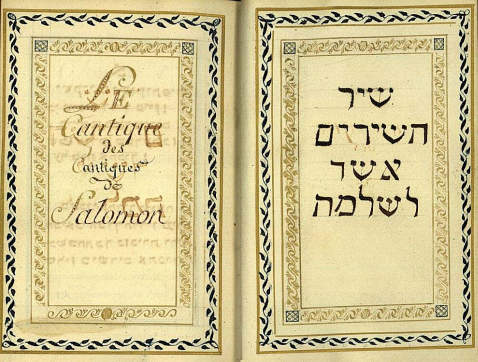 LE
Cantique
des
Cantiques
de
Salomon
שיר
השירים
אשר
לשלמה